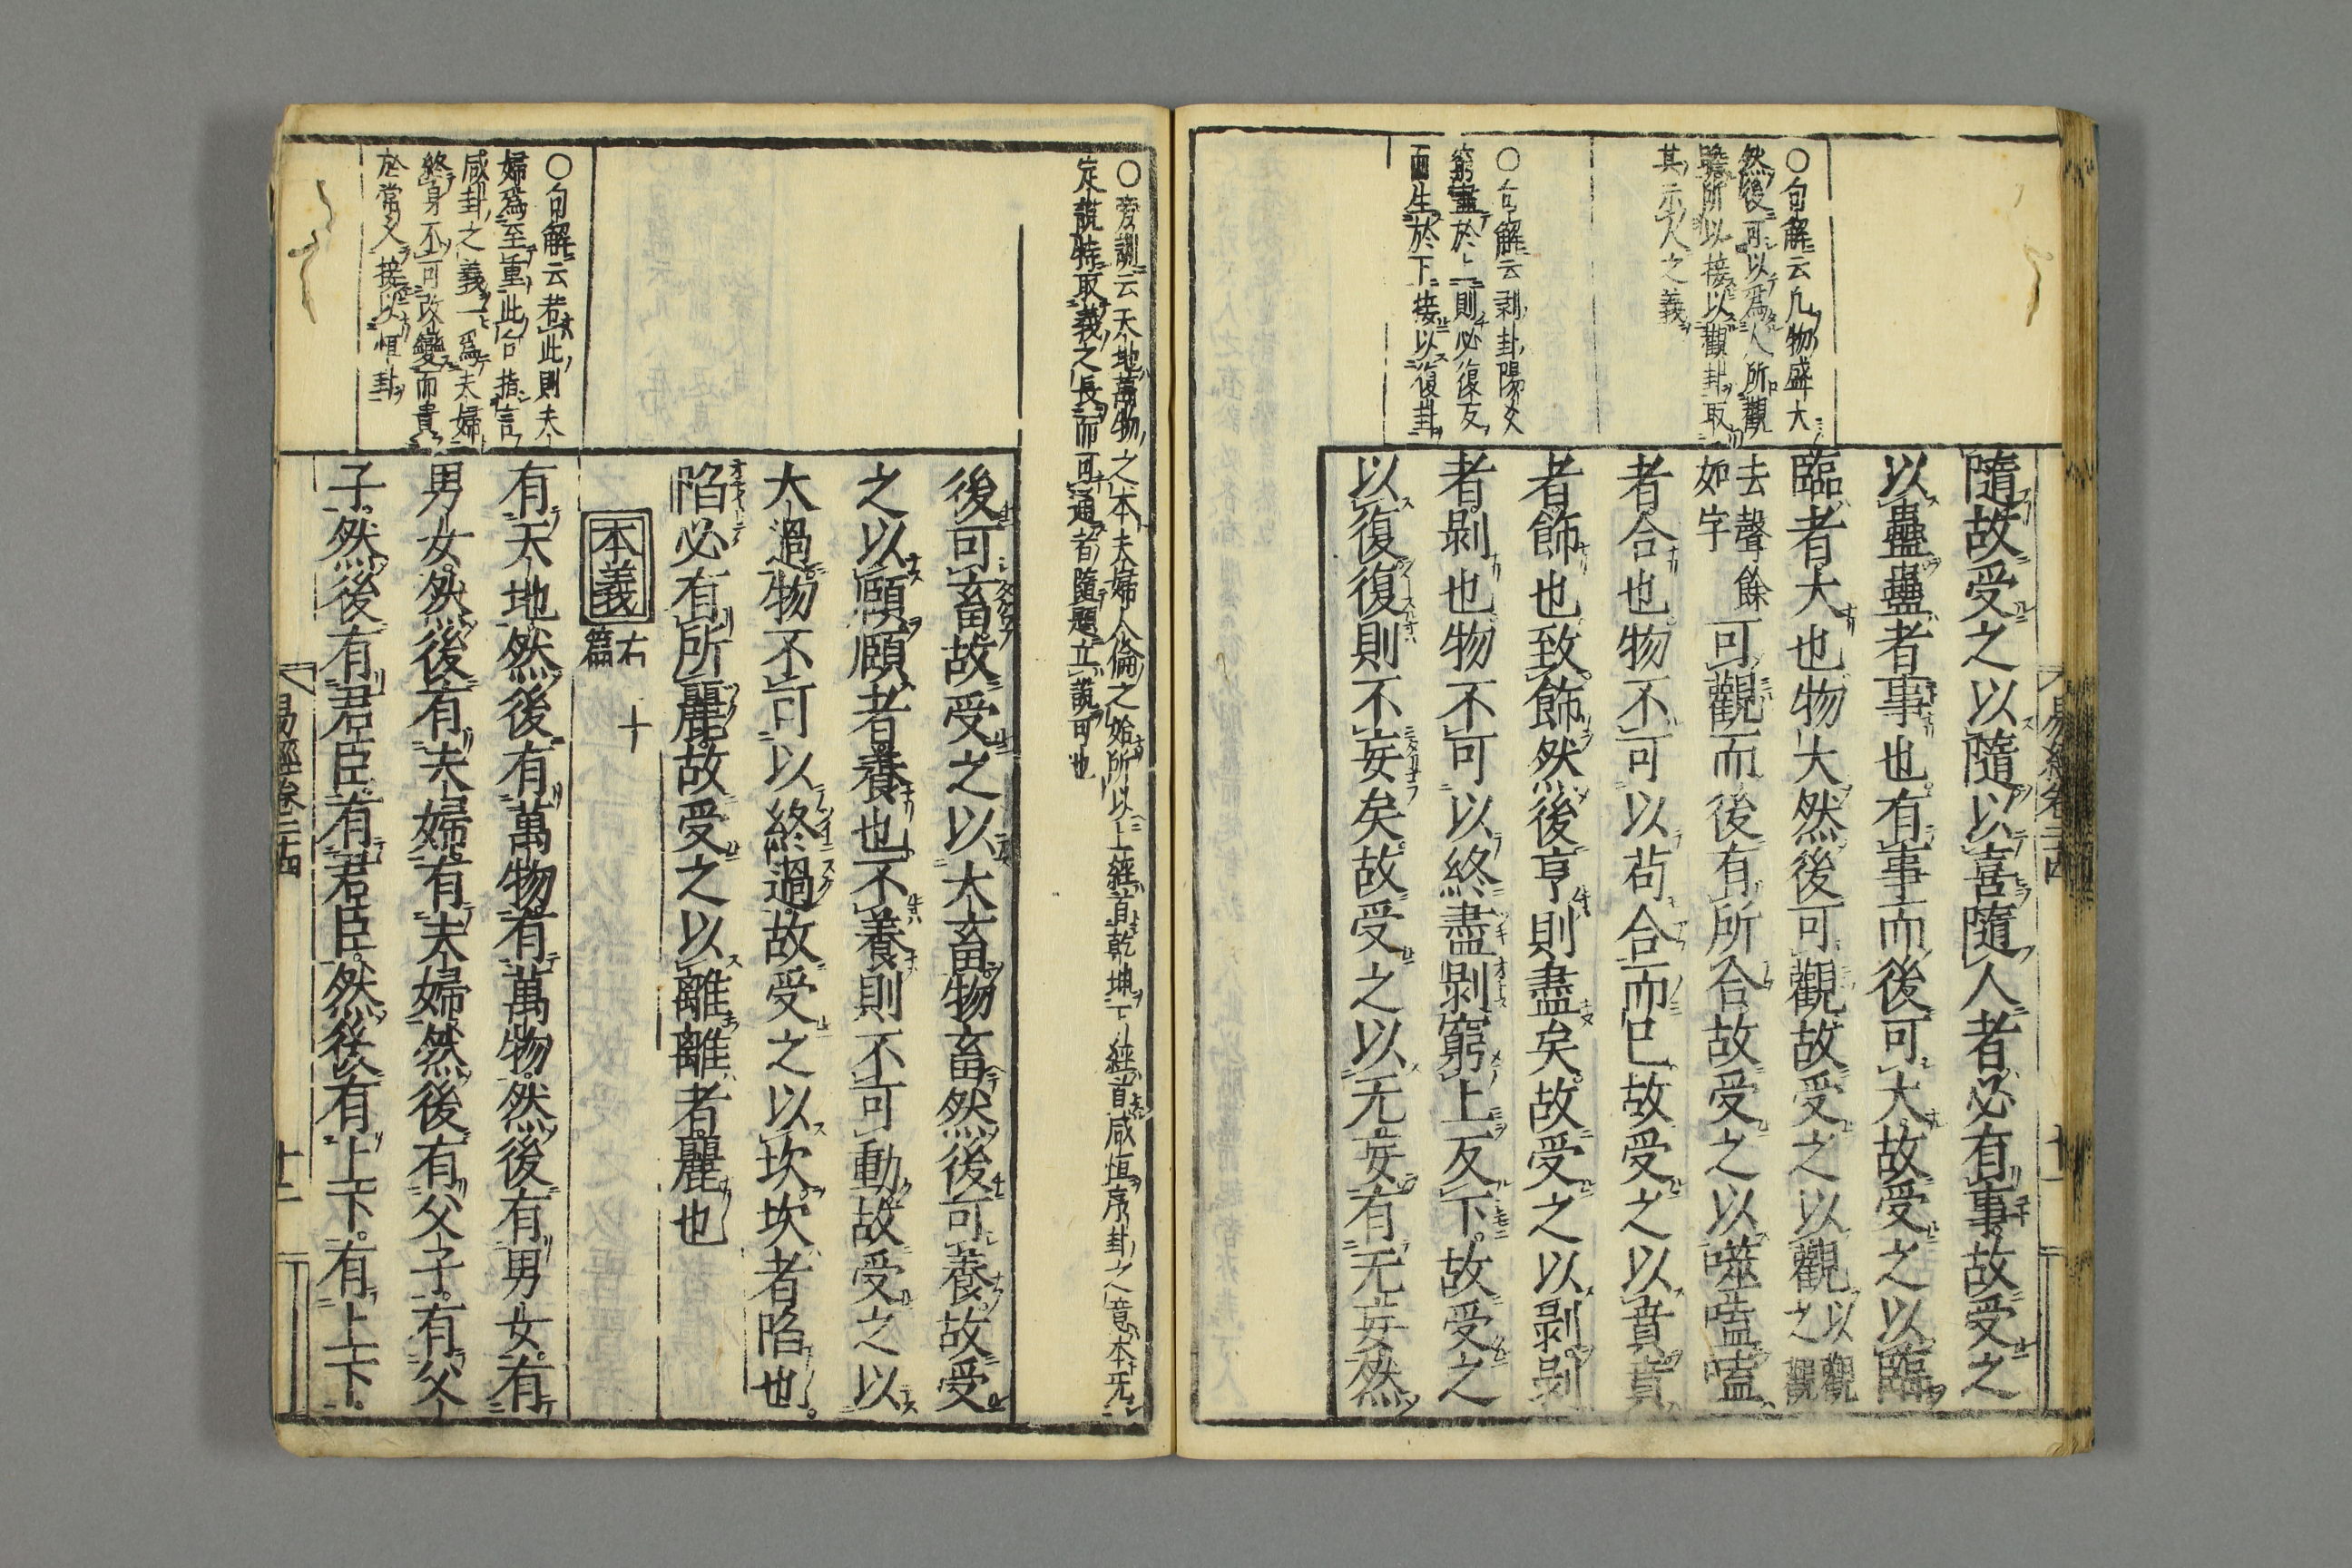 隨故受之以隨以喜隨人者必有事故受之
以蠱蠱者事也有事而後可大故受之以臨
臨者大也物大然後可觀故受之以觀以觀之觀
去聲餘如字可觀而後有所合故受之以噬嗑嗑
者合也物不可以苟合而已故受之以賁賁
者飾也致飾然後亨則盡矣故受之以剥剥
者剥也物不可以終盡剥窮上反下故受之
以復復則不妄矣故受之以无妄有无妄然
〇句解云凡物盛大
然後可以爲人所觀
臨所以接以觀卦取
其示人之義
〇句解云剥卦陽爻
窮盡於上則必復反
而生於下接以復卦
易經卷二十四
十一
〇旁訓云天地萬物之本夫婦人倫之始所以上經首乾坤下經首咸恒序卦之意本无
定說特取義之長而可通者隨題立說可也
後可畜故受之以大畜物畜然後可養故受
之以頤頤者養也不養則不可動故受之以
大過物不可以終過故受之以坎坎者陷也
陷必有所麗故受之以離離者麗也
本義 右十篇
有天地然後有萬物有萬物然後有男女有
男女然後有夫婦有夫婦然後有父子有父
子然後有君臣有君臣然後有上下有上下
〇句解云若此則夫
婦爲至重此合指言
咸卦之義一爲夫婦
終身不可改變而貴
於常久接以恒卦
易經卷二十四
十二